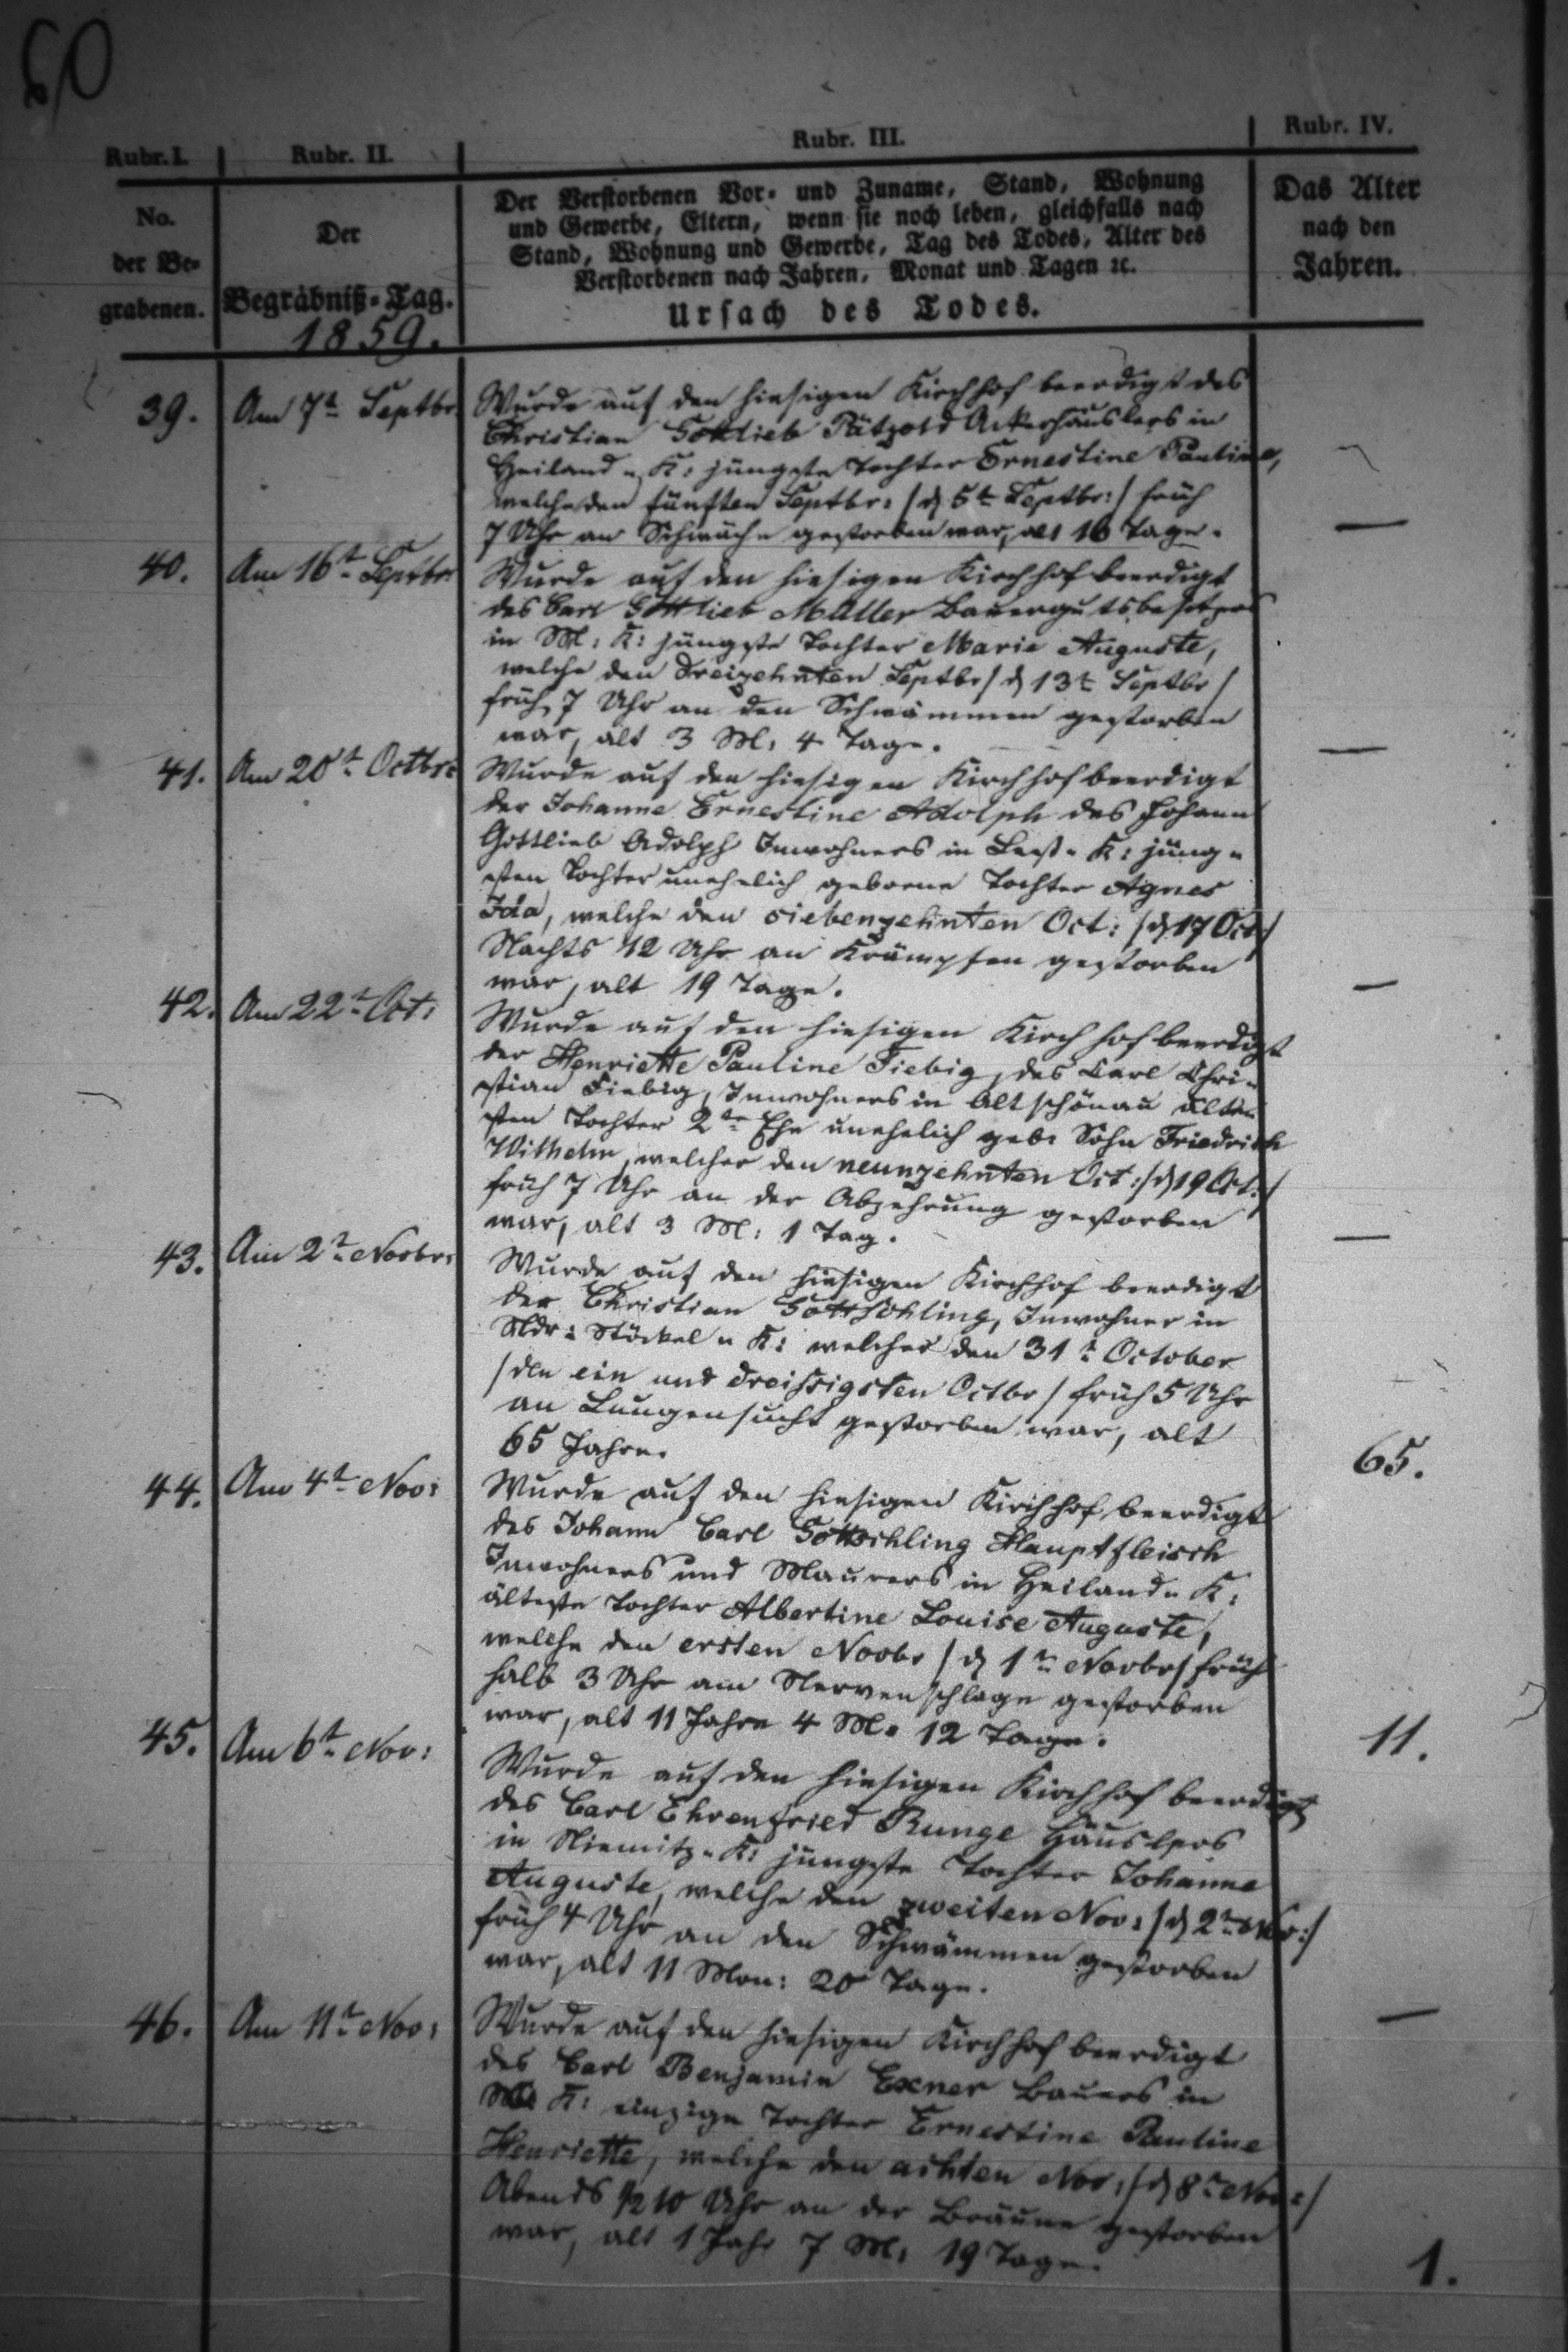 50
Rubr. I. Rubr. II. Rubr. III. Rubr. IV.
No. der Begrabenen.
Der Begräbniß-Tag.
1859.
Der Verstorbenen Vor- und Zuname, Stand, Wohnung
und Gewerbe, Eltern, wenn sie noch leben, gleichfalls nach
Stand, Wohnung und Gewerbe, Tag des Todes, Alter des
Verstorbenen nach Jahren, Monat und Tagen ꝛc.
Ursach des Todes.
Das Alter
nach den
Jahren.
39. Am 7t Septbr. Wurde auf den hiesigen Kirchhof beerdigt des
Christian Gottlieb Pätzold Ackerhäuslers in
Heiland-K: jüngste Tochter Ernestine Pauline,
welche den fünften Septbr: /d 5t Septbr:/ früh
7 Uhr an Schwäche gestorben war, alt 16 Tage. —
40. Am 16t Septbr Wurde auf den hiesigen Kirchhof beerdigt
des Carl Gottlieb Müller Bauergutsbesitzers
in M: K: jüngste Tochter Marie Auguste,
welche den dreizehnten Septbr /d 13t Septbr/
früh 7 Uhr an den Schwämmen gestorben
war, alt 3 M: 4 Tage. —
41. Am 20t Octbr: Wurde auf den hiesigen Kirchhof beerdigt
der Johanne Ernestine Adolph des Johann
Gottlieb Adolph Inwohners in K: jüng-
sten Tochter unehelich geborne Tochter Agnes
Ida, welche den siebenzehnten Oct: /d 17 Oct:/
Nachts 12 Uhr an Krämpfen gestorben
war, alt 19 Tage. —
42. Am 22t Oct: Wurde auf den hiesigen Kirchhof beerdigt
der Henriette Pauline Fiebig, des Carl Chri-
stian Fiebig, Inwohners in Altschönau ältes-
sten Tochter 2te Ehe unehelich geb: Sohn Friedrich
Wilhelm, welcher den neunzehnten Oct: /d 19 Oct:/
früh 7 Uhr an der Abzehrung gestorben
war, alt 3 M: 1 Tag. —
43. Am 2t Novbr: Wurde auf den hiesigen Kirchhof beerdigt
der Christian Gottschling, Inwohner in
Ndr: Stöckel-K: welcher den 31t October
/den ein und dreißigsten Octbr/ früh 5 Uhr
an Lungensucht gestorben war, alt
65 Jahre. 65.
44. Am 4t Nov: Wurde auf den hiesigen Kirchhof beerdigt
des Johann Carl Gottschling Hauptfleisch
Inwohners und Maurers in Heiland-K:
älteste Tochter Albertine Louise Auguste,
welche den ersten Novbr /d 1t Novbr/ früh
halb 3 Uhr am Nervenschlage gestorben
war, alt 11 Jahre 4 M: 12 Tage. 11.
45. Am 6t Nov: Wurde auf den hiesigen Kirchhof beerdigt
des Carl Ehrenfried Runge Häuslers
in Niemitz-K: jüngste Tochter Johanne
Auguste, welche den zweiten Nov: /d 2t Nov:/
früh 4 Uhr an den Schwämmen gestorben
war, alt 11 Mon: 20 Tage. —
46. Am 11t Nov: Wurde auf den hiesigen Kirchhof beerdigt
des Carl Benjamin Exner Bauers in
M: K: einzige Tochter Ernestine Pauline
Henriette, welche den achten Nov: /d 8t Nov:/
Abends 1/2 10 Uhr an der Bräune gestorben
war, alt 1 Jahr 7 M: 19 Tage. 1.